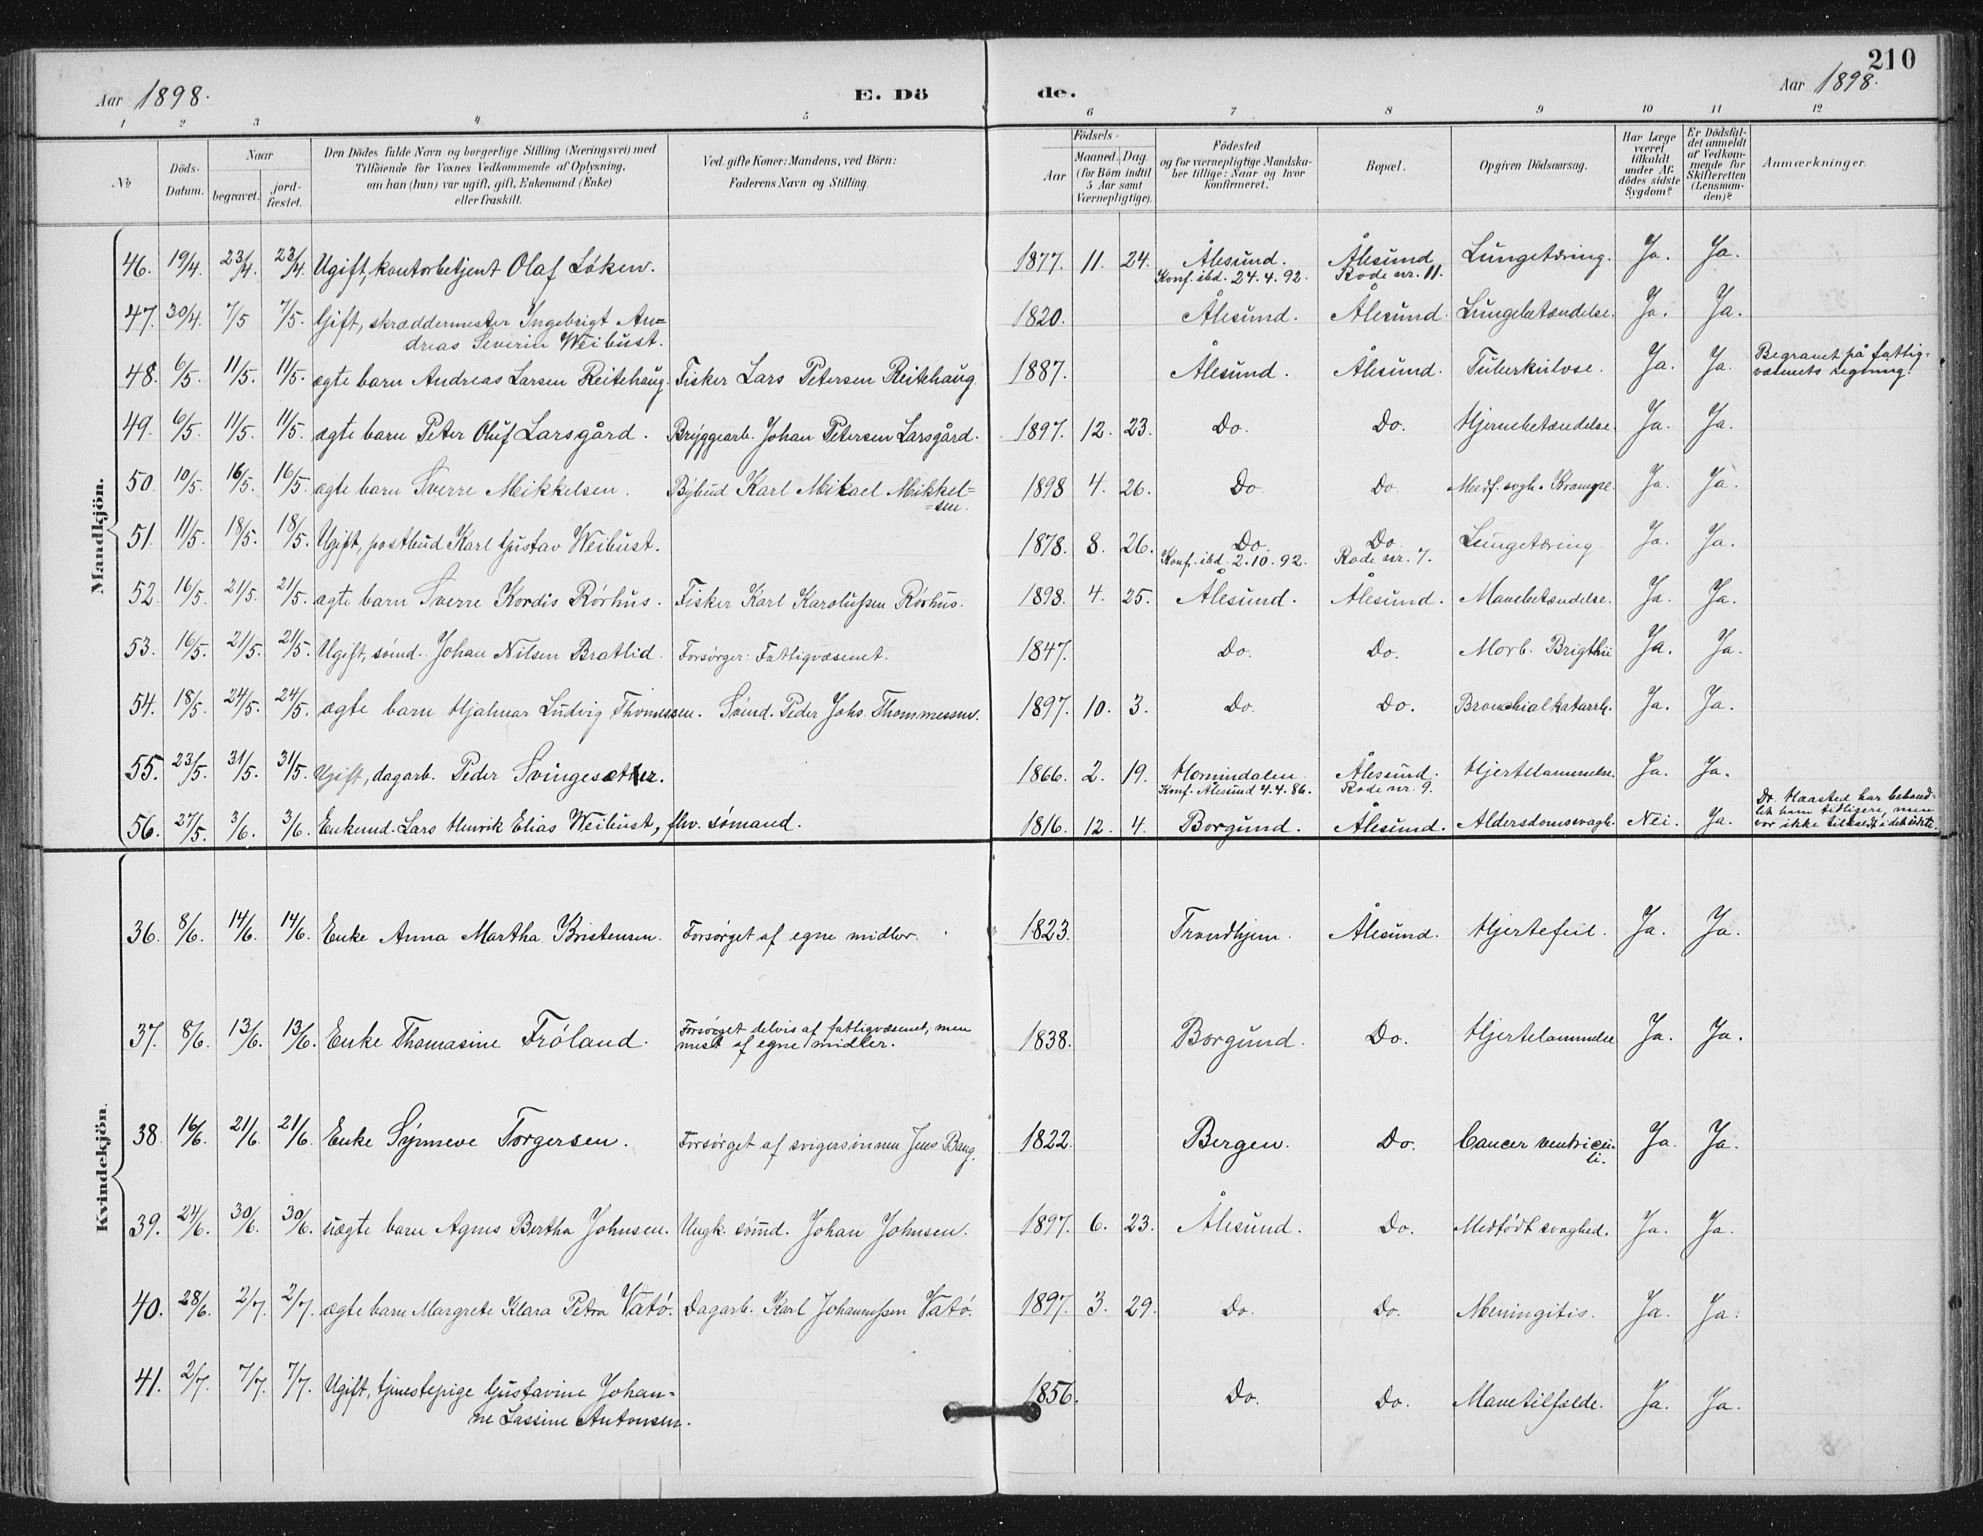 210
Aar 1898. E. Dö de. Aar 1898.
1 2 3 4 5 6 7 8 9 10 11 12
№ Döds-Datum. Naar begravet. jordfæstet. Den Dödes fulde Navn og borgerlige Stilling (Næringsvei) med Tilföiende for Voxnes Vedkommende af Oplysning, om han (hun) var ugift, gift, Enkemand (Enke) eller fraskilt. Ved gifte Koner: Mandens, ved Börn: Faderens Navn og Stilling. Födsels- Aar Maaned. Dag (for Börn indtil 5 Aar samt Værnepligtige). Födested og for værnepligtige Mandskaber tillige: Naar og hvor konfirmeret. Bopæl. Opgiven Dödsaarsag. Har Læge været tilkaldt under Afdödes sidste Sygdom? Er Dödsfaldet anmeldt af Vedkommende for Skifteretten (Lensmanden)? Anmærkninger.
Mandkjön.
46. 19/4. 23/4. 23/4. Ugift, kontorbetjent Olaf Løken. 1877. 11. 24. Ålesund. Konf. ibd. 24.4.92. Ålesund Rode nr. 11. Lungetæring. Ja. Ja.
47. 30/4. 7/5 7/5. Gift, skræddermester Ingebrigt Andreas Severin Weibust. 1820. Ålesund. Ålesund. Lungebetændelse. Ja. Ja.
48. 6/5. 11/5. 11/5. ægte barn Andreas Larsen Reitehaug. Fisker Lars Petersen Reitehaug 1887. Ålesund. Ålesund. Tuberkulose. Ja. Ja. Begravet på fattigvæsenets regning.
49. 6/5. 11/5. 11/5. ægte barn Peter Oluf Larsgård. Bryggearb. Johan Petersen Larsgård. 1897. 12. 23. Do. Do. Hjernebetændelse. Ja. Ja.
50. 10/5. 16/5. 16/5. ægte barn Sverre Mikkelsen. Bybud Karl Mikael Mikkelsen. 1898 4. 26. Do. Do. Medf. svagh. Krampe. Ja. Ja.
51. 11/5. 18/5. 18/5. Ugift, postbud Karl Gustav Weibust. 1878. 8. 26. Do. Konf. ibd. 2.10.92. Do Rode nr. 7. Lungetæring Ja. Ja.
52. 16/5. 21/5. 21/5. ægte barn Sverre Kordis Rørhus. Fisker Karl Karolussen Rørhus. 1898. 4. 25. Ålesund. Ålesund. Mavebetændelse. Ja. Ja.
53. 16/5. 21/5. 21/5. Ugift, sømd. Johan Nilsen Bratlid. Forsørger: Fattigvæsenet. 1847. Do. Do. Morb. Brigthii Ja. Ja.
54. 18/5. 24/5. 24/5. ægte barn Hjalmar Ludvig Thommessen. Sømd. Peder Johs. Thommessen. 1897. 10. 3. Do. Do. Bronchialkatarrh. Ja. Ja.
55. 23/5. 31/5. 31/5. Ugift, dagarb. Peder Svingesætter. 1866. 2. 19. Hornindalen Konf. Ålesund 4.4.86. Ålesund. Rode nr. 9. Hjertelammelse. Ja. Ja.
56. 27/5. 3/6. 3/6. Enkemd. Lars Henrik Elias Weibust, fhv. sømand. 1816. 12. 4. Borgund. Ålesund. Aldersdomssvagh. Nei. Ja. Dr. Haasted har behandlet ham tidligere, men var ikke tilkaldt i det sidste.
Kvindekjön.
36. 8/6. 14/6. 14/6. Enke Anna Martha Kristensen. Forsørget af egne midler. 1823. Trondhjem. Ålesund. Hjertefeil. Ja. Ja.
37. 8/6. 13/6. 13/6. Enke Thomasine Frøland. Forsørget delvis af fattigvæsenet, men mest af egne midler. 1838. Borgund. Do. Hjertelammelse Ja. Ja.
38. 16/6. 21/6. 21/6. Enke Synneve Torgersen. Forsørget af svigersønnen Jens Bang. 1822. Bergen. Do. Cancer ventriculi. Ja. Ja.
39. 24/6. 30/6. 30/6. uægte barn Agnes Bertha Johnsen. Ungk. sømd. Johan Johnsen. 1897. 6. 23. Ålesund. Do. Medfødt svaghed. Ja. Ja.
40. 28/6. 2/7. 2/7. ægte barn Margrete Klara Petra Vatø. Dagarb. Karl Johannessen Vatø. 1897. 3. 29. Do. Do. Meningitis. Ja. Ja.
41. 2/7. 7/7. 7/7. Ugift, tjenestepige Gustavine Johanne Lassine Antonsen. 1856. Do. Do. Mavetilfælde. Ja. Ja.